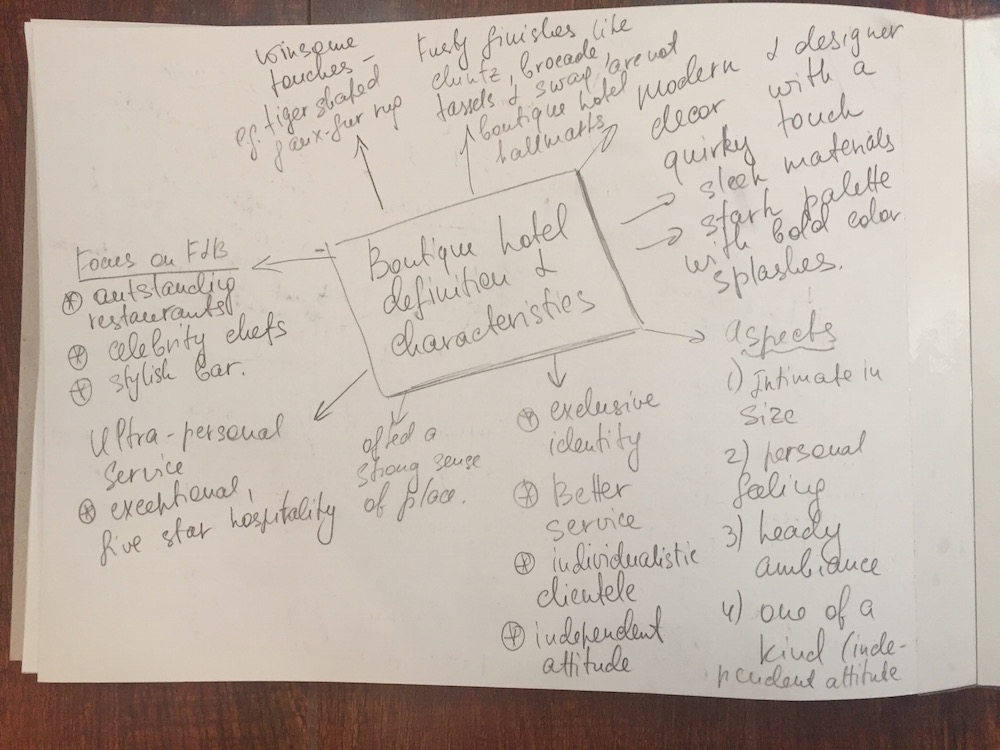 Winsome
touches -
eg. tiger shaped
faux-fur rug
Fusty finishes like
chintz, brocade,
tassels & swag, are not
boutique hotel
hallmarks
Modern & designer
decor with a
quirky touch
sleek materials
stark palette
with bold color
splashes.
Boutique hotel
definition &
characteristics
Focus on F&B
outstanding
restaurants
celebrity chefs
stylish bar.
Ultra-personal
service
exceptional,
five star hospitality
a
strong sense
of place.
exclusive
identity
Better
service
individualistic
clientele
independent
attitude
aspects
1) Intimate in
size
2) personal
feeling
3) heady
ambiance
4) one of a
kind (inde-
pendent attitude